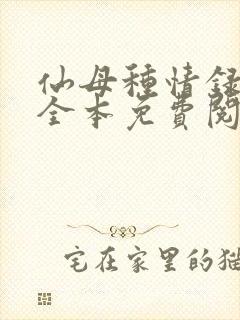 仙母種情録
全本免費閱
宅在家里的猫